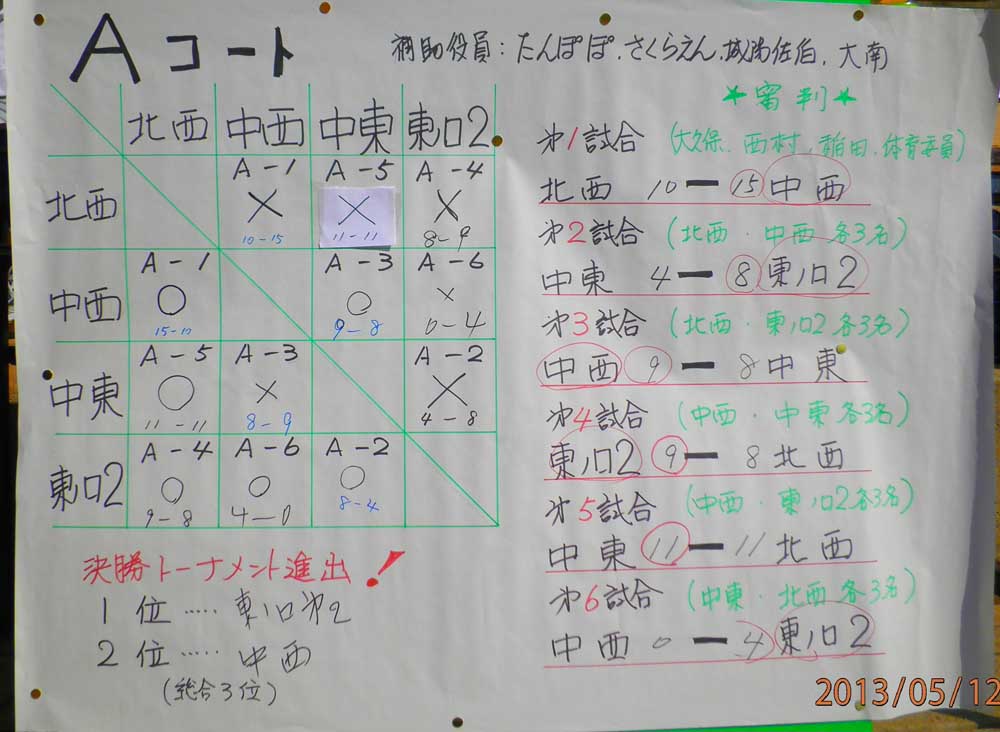 Aコート
補助役員：たんぽぽ.さくらえん.城陽佐伯.大南
北西 中西 中東 東ノ口2
北西 A-1 × 10-15 A-5 × 11-11 A-4 × 8-9
中西 A-1 ○ 15-10 A-3 ○ 9-8 A-6 × 0-4
中東 A-5 ○ 11-11 A-3 × 8-9 A-2 × 4-8
東ノ口2 A-4 ○ 9-8 A-6 ○ 4-0 A-2 ○ 8-4
決勝トーナメント進出!
1位……東ノ口第2
2位……中西
(総合3位)
★審判★
第1試合 (大久保.西村.稲田.体育委員)
北西 10ー15 中西
第2試合 (北西・中西各3名)
中東 4ー8 東ノ口2
第3試合 (北西・東ノ口2各3名)
中西 9ー8 中東
第4試合 (中西・中東各3名)
東ノ口2 9ー8 北西
第5試合 (中西・東ノ口2各3名)
中東 11ー11 北西
第6試合 (中東・北西各3名)
中西 0ー4 東ノ口2
2013/05/12